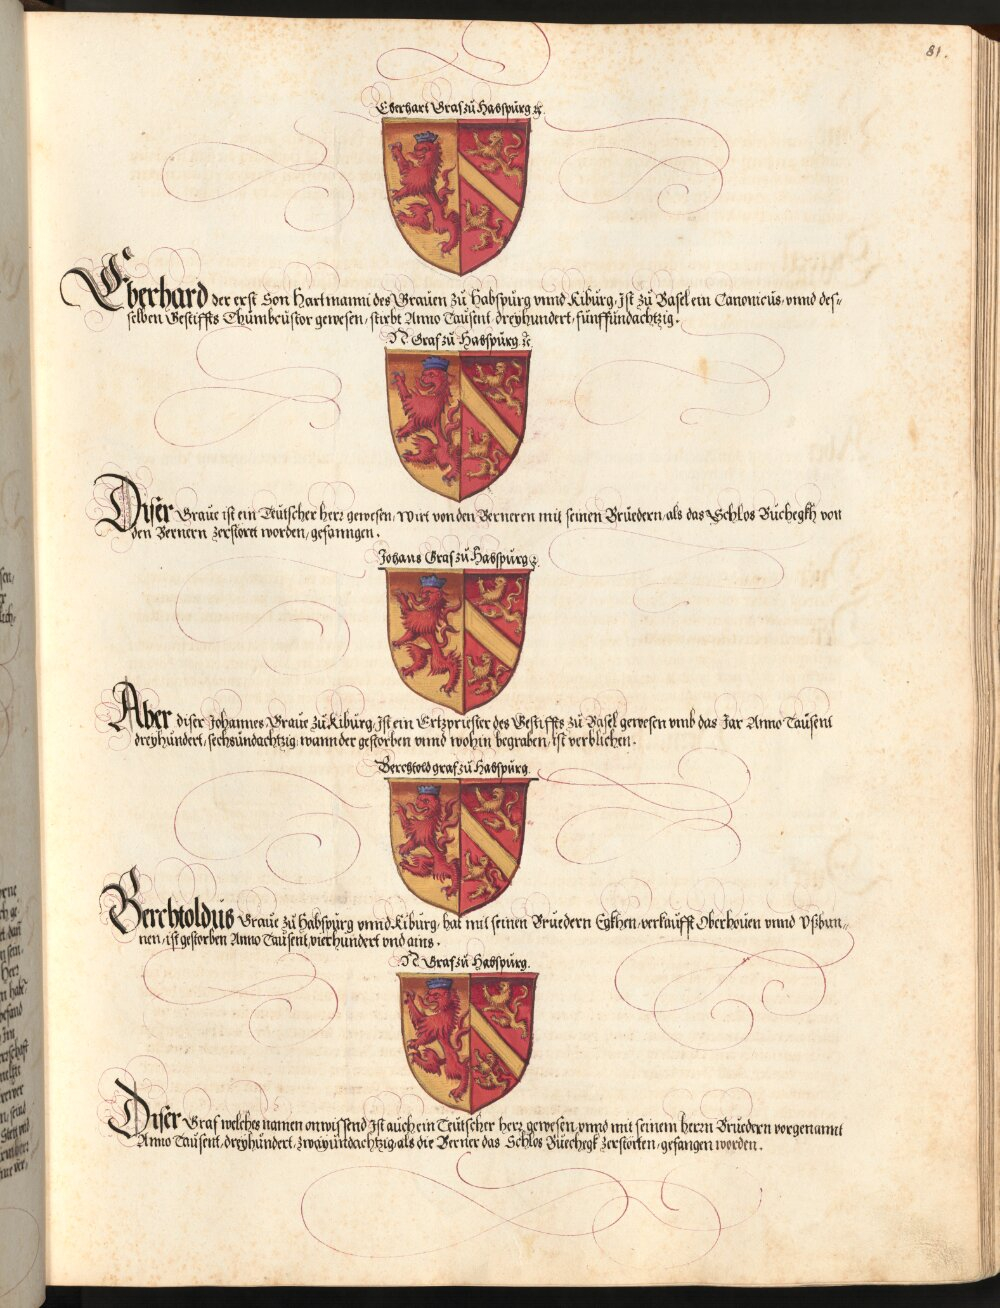 81.
Eberhart Graf zů Habspůrg ꝛc.
Eberhard der erst Son Hartmanni des Graůen zů Habspůrg vnnd Kibůrg, Jst zů Basel ein Canonicůs, vnnd des-
selben Gestiffts Thůmbcůstor gewesen, stirbt Anno Taůsent, dreyhůndert, fůnffůndachtzig.
N Graf zů Habspůrg ꝛc
Diser Graůe ist ein Teůtscher herr gewesen, Wirt von den Berneren mit seinen Brůedern, als das Schlos Bůchegkh von
den Bernern zerstöret worden, gefanngen.
Johans Graf zů Habspůrg ꝛc.
Aber diser Johannes Graůe zů Kibůrg, Jst ein Ertzpriester des Gestiffts zů Basel gewesen vmb das Jar Anno Taůsent
dreyhůndert, sechsůndachtzig, wann der gestorben vnnd wohin begraben, ist verblichen.
Berchtold graf zů Habspůrg.
Berchtoldůs Graůe zů Habspůrg vnnd Kibůrg, hat mit seinen Brůedern Egkhen, verkaůfft Oberhouen vnnd Vßbun-
nen, ist gestorben Anno Taůsent, vierhundert vnd ains.
N Graf zů Habspůrg.
Diser Graf welches namen onwissend Jst auch ein Teůtscher herr gewesen, vnnd mit seinem herrn Brůedern vorgenannt
Anno Taůsent, dreyhůndert, zwayůndachtzig, als die Berner das Schlos Bůchegk zerstörten, gefangen worden.